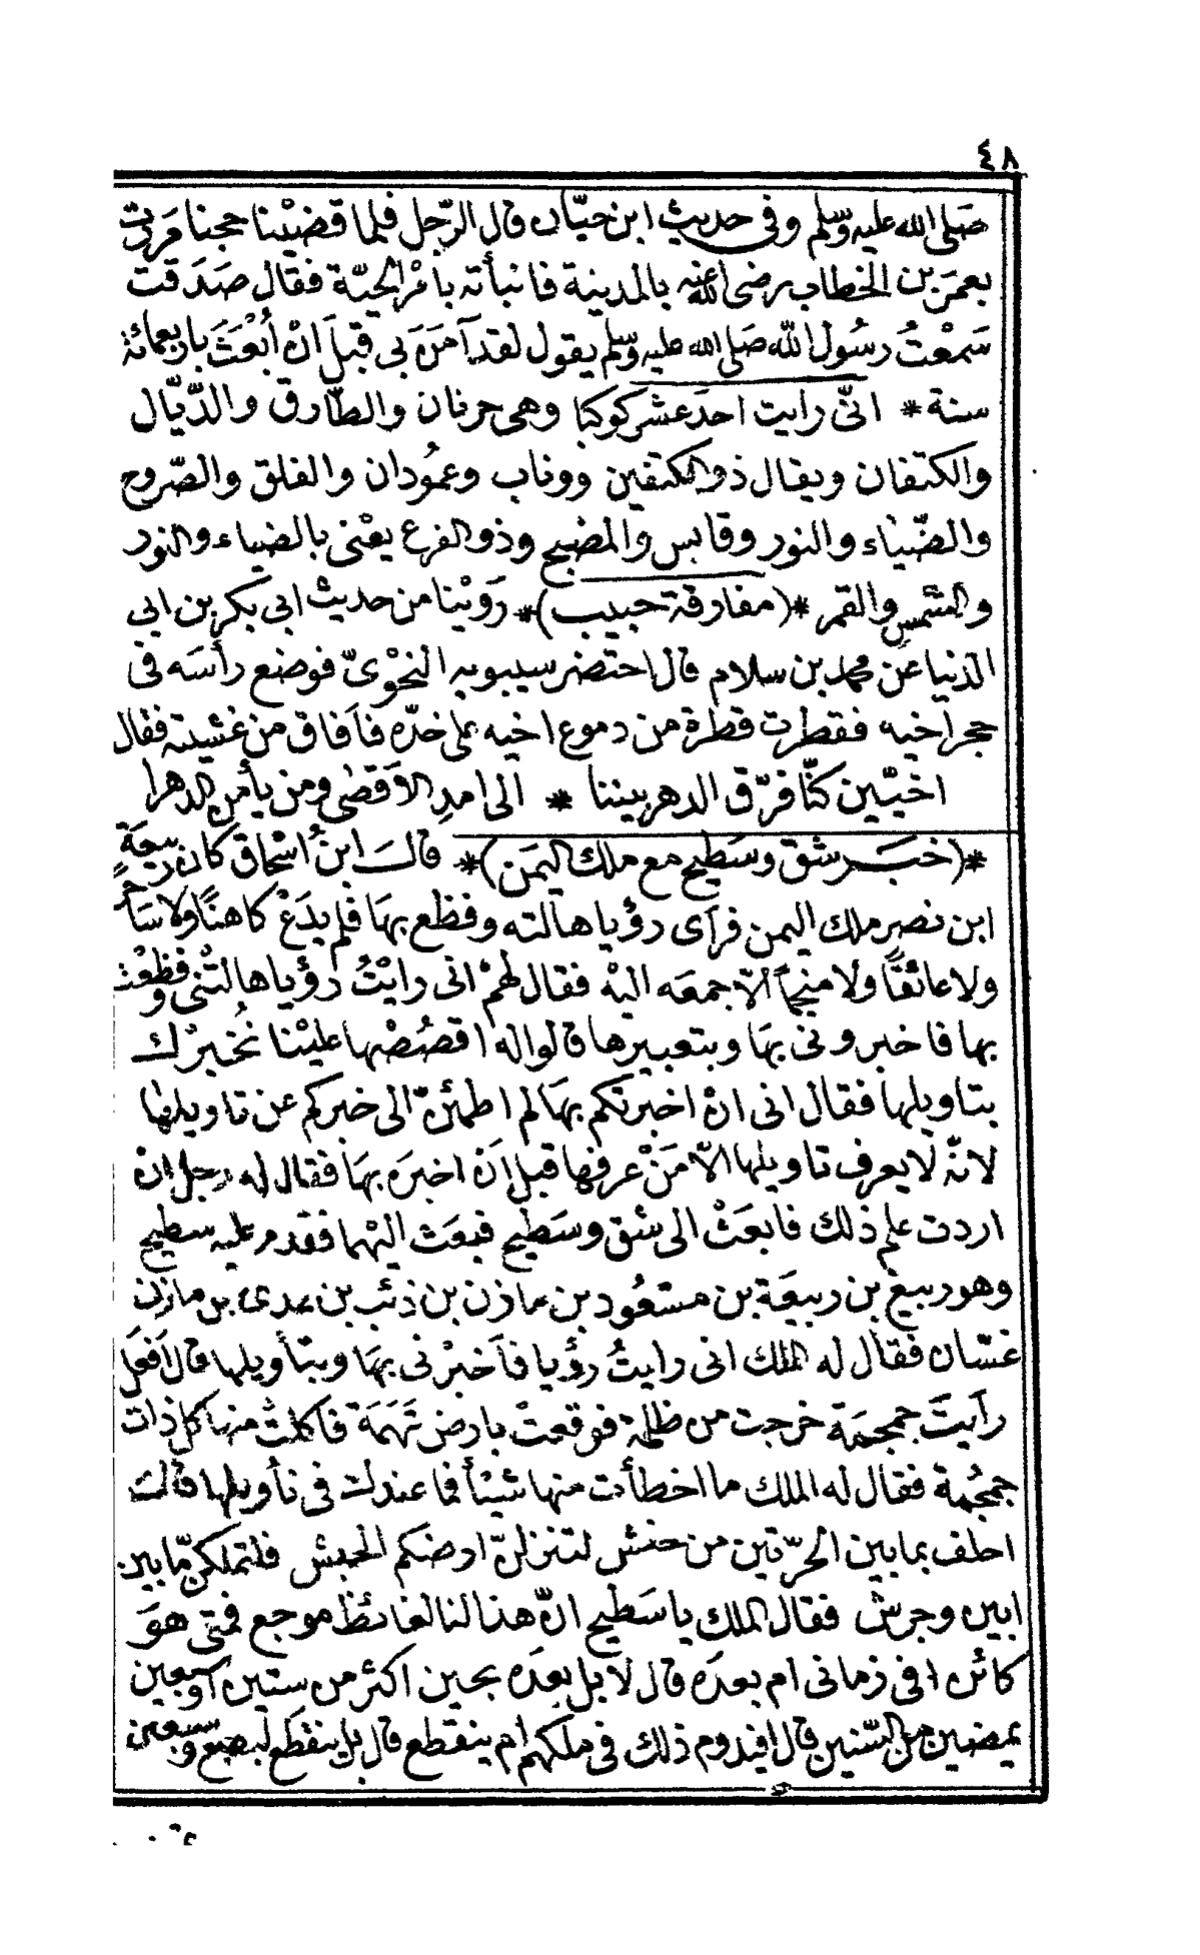 ٤٨
صَلى الله عليه وسلم وفى حديث ابن حيّان قال الرّجل فلما قضيْنا حجنا مَررت
بعمَر بن الخطاب رضى الله عنه بالمدينة فانبأته بأمْر الحيّة فقال صَدَقت
سَمْعتُ رسُول الله صَلى الله عليه وسلم يقول لقد آمَنَ بى قبلَ انْ أُبْعَثَ باربعمائة
سنة * انّى رايت احدَ عشر كوكبا وهى جرنان والطّارق والدّيّال
والكتفان ويقال ذو الكتفين ووناب وعمُودان والفلق والصّروح
والضّيَاء والنور وقابس والمضبح وذو الفرع يعْنى بالضياء والنور
والشمس والقمر *(مفارقة حبيب)* رَوَيْنا من حديث ابى بكر بن ابى
الدنيا عن محمد بن سلام قال احتضر سيبويه النحْوىّ فوضع رأسَه فى
حجر اخيه فقطرت قطرة من دموع اخيه على خدّه فآفاق من غشيته فقال
اخيّين كنّا فرّق الدهر بيننا * الى امدِ الاَقصَى ومن يأمن الدهرا
*(خبَر شق وسَطيح مع ملك اليمَن)* قالَ ابنُ اسْحاق كان ربيعَة
ابن نصر ملك اليمن فرآى رؤيا هالته وفظع بهَا فلم يدَعْ كاهنًا ولا سَاحرًا
ولا عائفًا ولا منجمًا الاّ جمعَه اليْه فقال لهمْ انى رايْتُ رؤيا هالتْنى وفظعْت
بها فاخبرونى بهَا وبتعبيرها قالوا له اقصُصْها عليْنا نُخبرْك
بتاويلها فقال انى انْ اخبرتكم بهَا لم اطمئنّ الى خبركم عن تاويلها
لانّه لا يعرف تاويلها الاّ مَنْ عرفها قبل اَن اخبرَه بهَا فقال له رجل ان
اردت علم ذلك فابعَثْ الى شق وسَطيح فبعَث اليْهما فقدم عليه سطيح
وهو ربيع بن ربيعَة بن مسْعُود بن مازن بن ذئب بن عدى بن مازن
غسّان فقال له الملك انى رايتُ رؤيا فآخبرْنى بهَا وبتأويلها قال اَفعَل
رآيتَ جمجمَة خرجت من ظلمة فوقعتْ بارض تَهَمَة فاكلتْ منها كل ذات
جمجُمة فقال له الملك ما اخطأت منها شيْأ فما عندك فى تأويلها قالَ
احلف بما بين الحرّتين من حنش لتنزلنّ ارضكم الحبش فلتملكنّ ما بين
ابين وجرش فقال الملك يا سَطيح انّ هذا لنا لغائظ موجع فمتى هوَ
كائن افى زمانى ام بعدَه قال لا بل بعدَه بحين اكثر من ستين او سبعين
يمضين من السّنين قال افيدوم ذلك فى ملكهم ام ينقطع قال بل ينقطع لبضع وسبعين